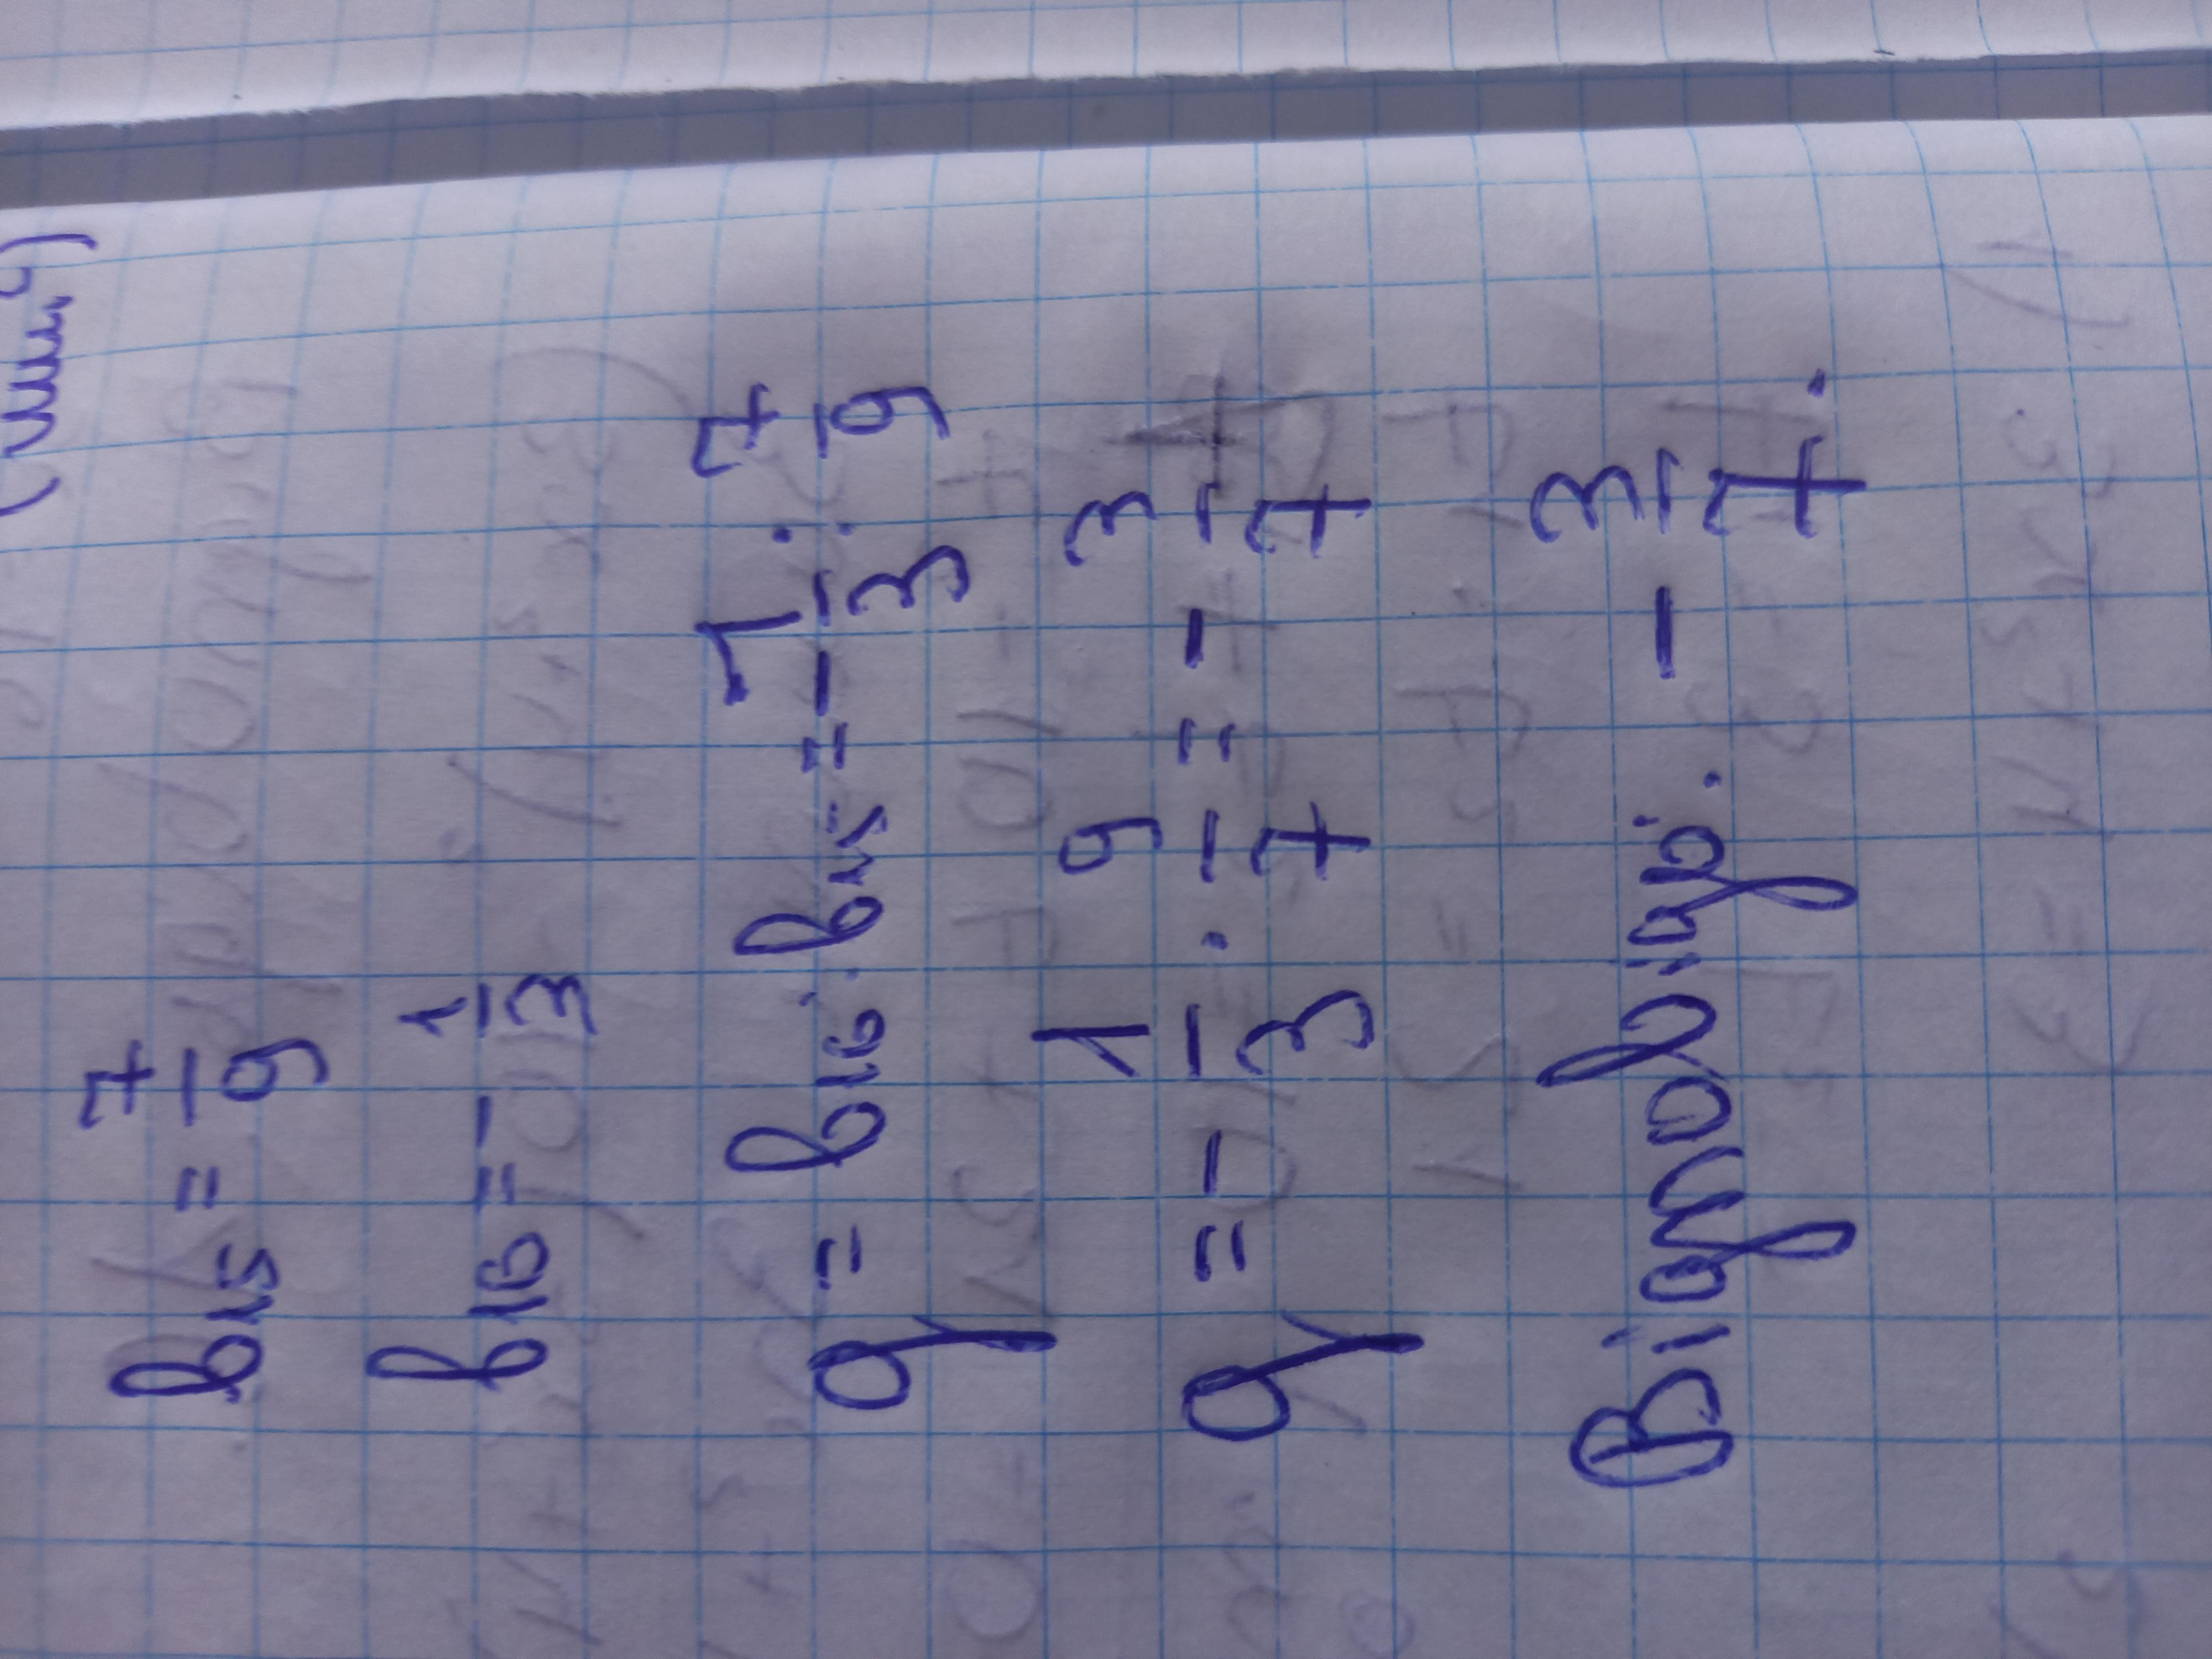 b₁₅ = 7/9
b₁₆ = - 1/3
q = b₁₆ : b₁₅ = - 1/3 : 7/9
q = - 1/3 · 9/7 = - 3/7
Відповідь: - 3/7.